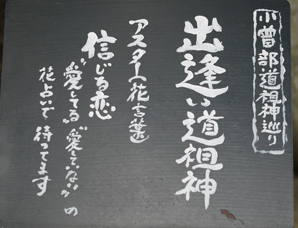 小曽部道祖神巡り
出逢い道祖神
アスター(花言葉)
信じる恋
“愛してる”“愛していない”の
花占いで待ってます